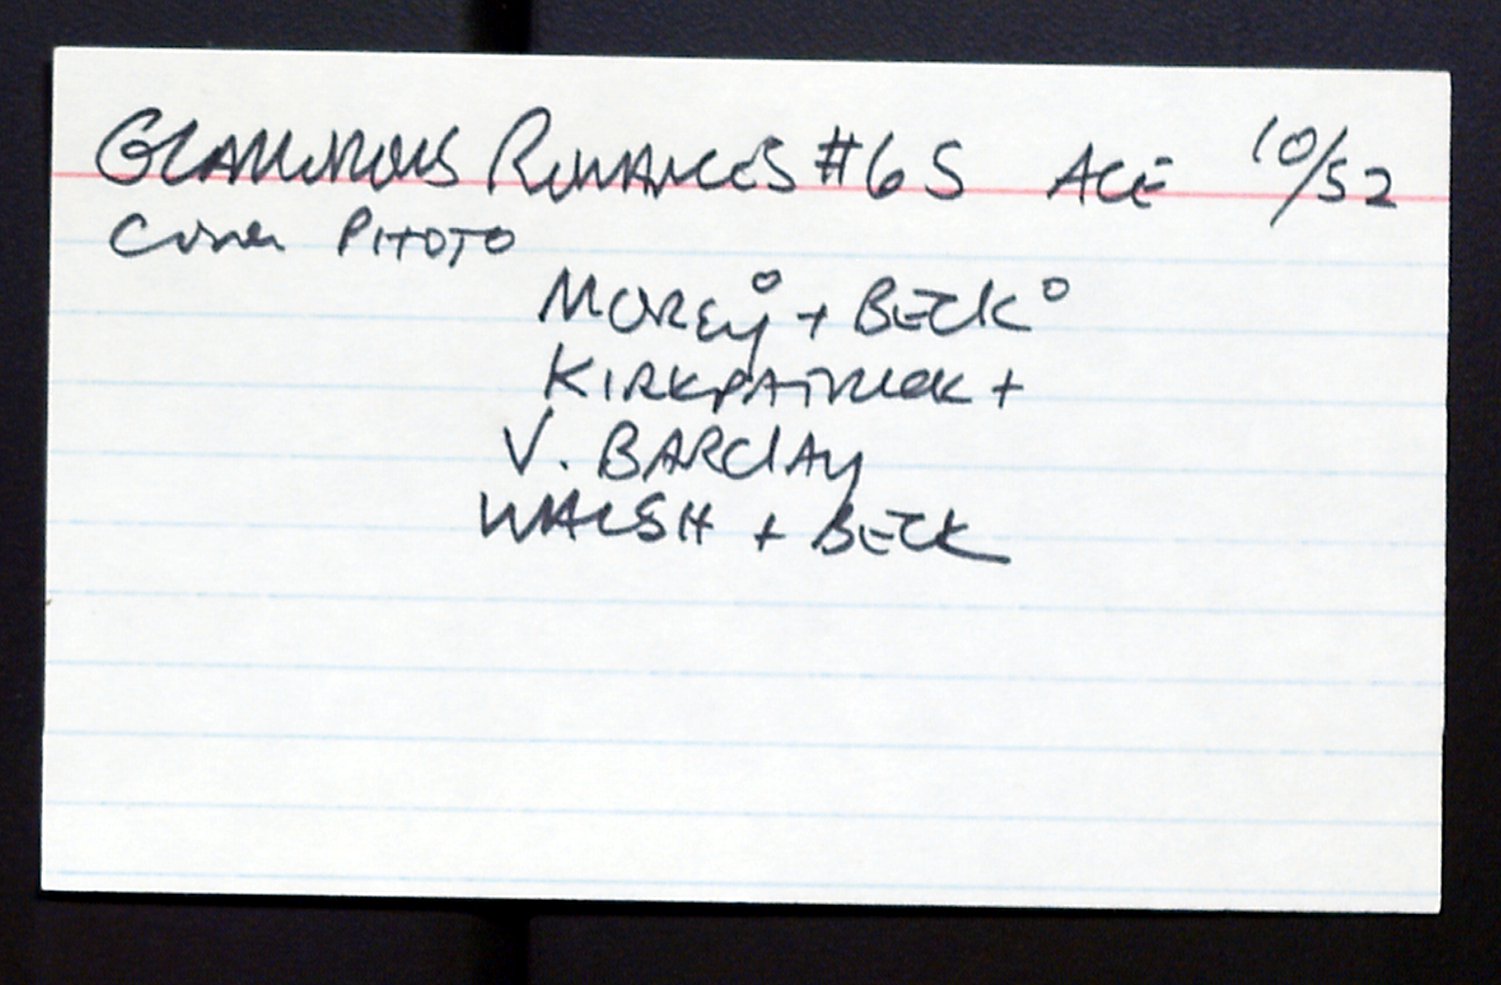 GLAMOROUS ROMANCES #65 ACE 10/52
COVER PHOTO
MOREY° + BECK°
KIRKPATRICK +
V. BARCLAY
WALSH + BECK